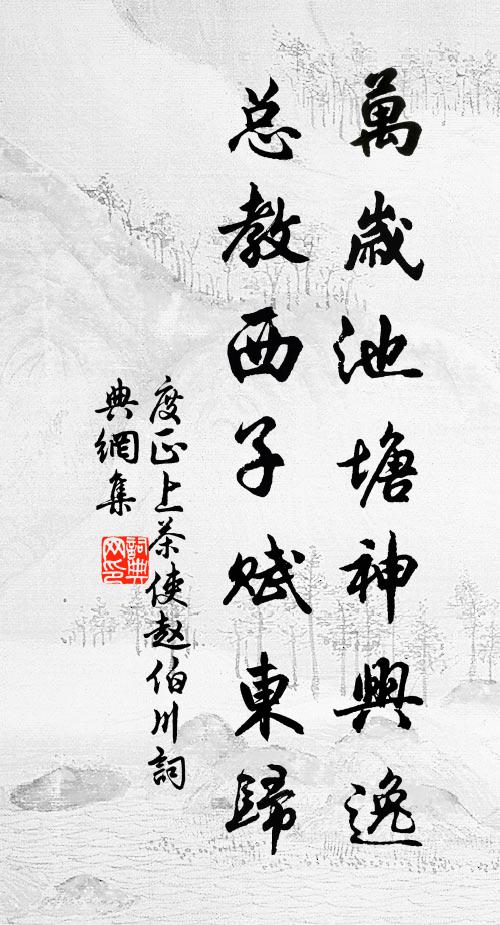 萬歲池塘神興逸
总教西子赋東歸
度正上茶使赵伯川詞
典網集
詞典网印